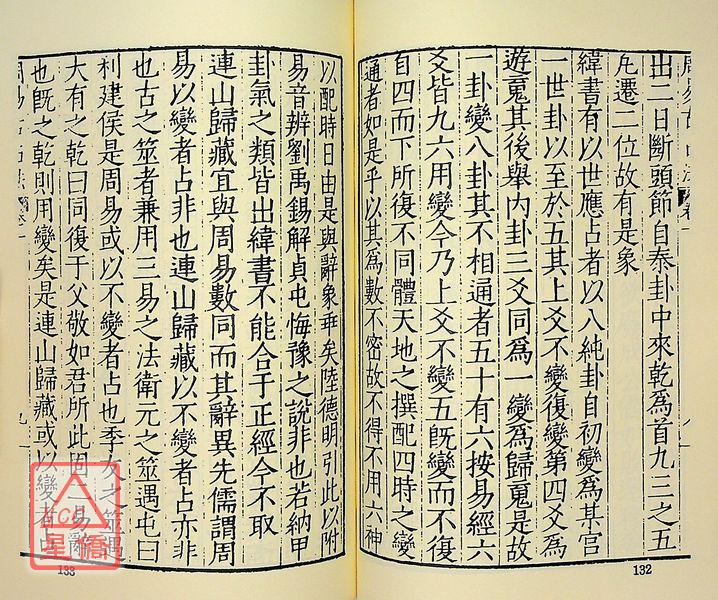 周易古占法 卷一 八
出二日斷頭節自泰卦中來乾爲首九三之五
凡遷二位故有是象
緯書有以世應占者以八純卦自初變爲某宮
一世卦以至於五其上爻不變復變第四爻爲
遊䰟其後舉內卦三爻同爲一變爲歸䰟是故
一卦變八卦其不相通者五十有六按易經六
爻皆九六用變今乃上爻不變五旣變而不復
自四而下所復不同體天地之撰配四時之變
通者如是乎以其爲數不密故不得不用六神
132
以配時日由是與辭象乖矣陸德明引此以附
易音辨劉禹錫解貞屯悔豫之說非也若納甲
卦氣之類皆出緯書不能合于正經今不取
連山歸藏宜與周易數同而其辭異先儒謂周
易以變者占非也連山歸藏以不變者占亦非
也古之筮者兼用三易之法衛元之筮遇屯曰
利建侯是周易或以不變者占也季友之筮遇
大有之乾曰同復于父敬如君所此固二易辭
也旣之乾則用變矣是連山歸藏或以變者占
周易古占法 卷一 九
133
星僑